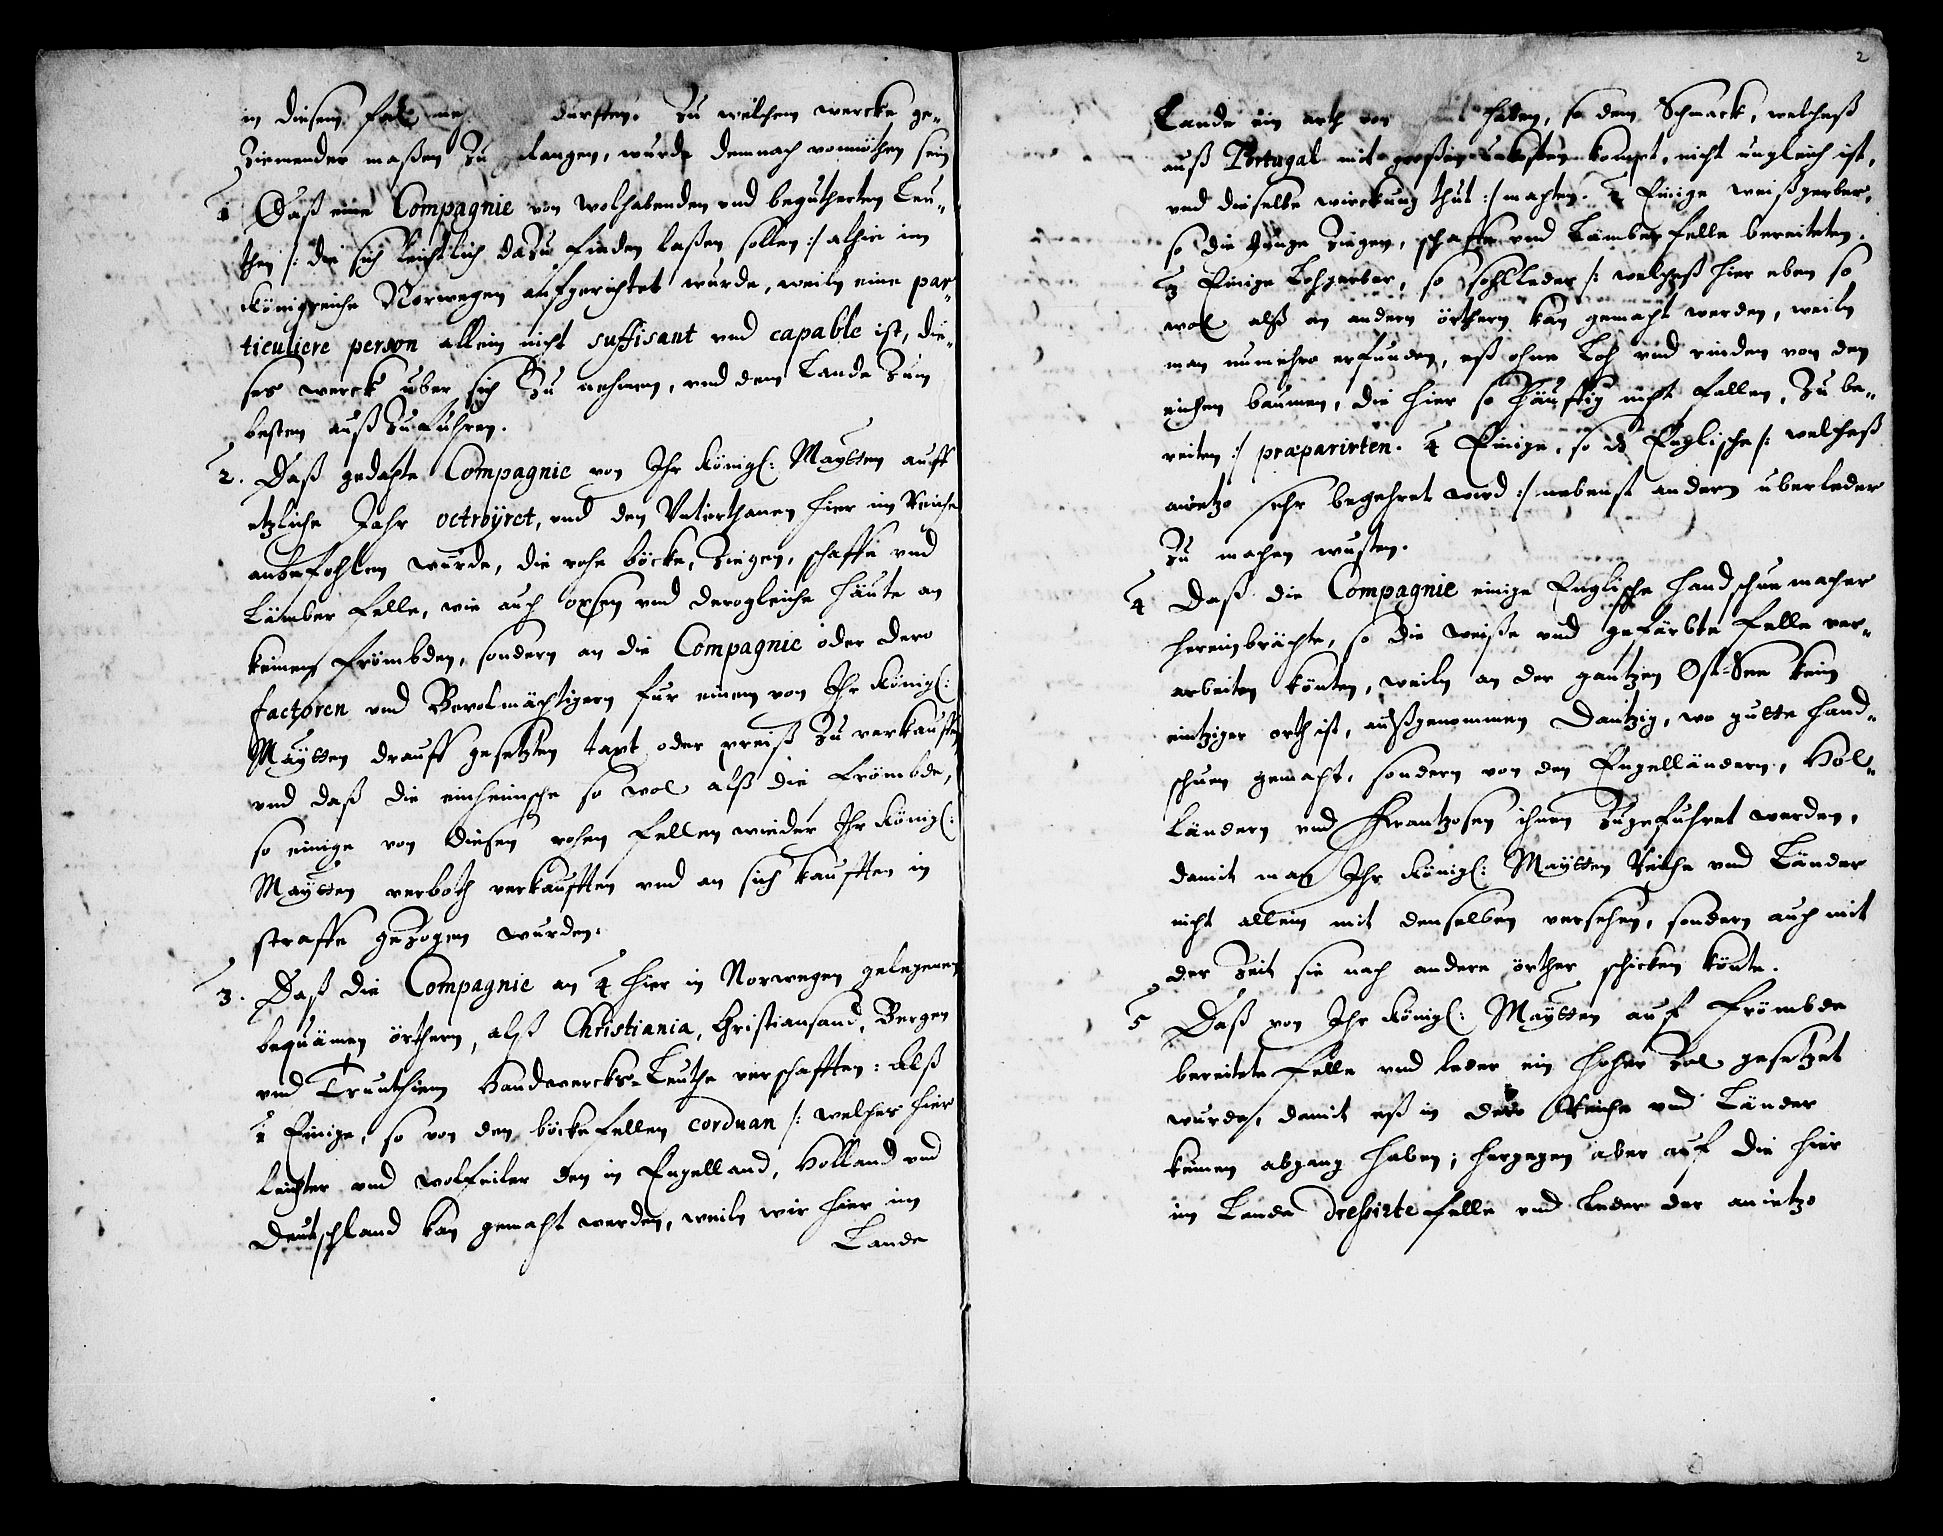 in diesem fal durften. Zu welchem wercke ge-
Ziemender maßen Zu gelangen, wurde demnach vonnöthen sein
1 Daß eine Compagnie von wolhabenden vnd begutherten Leu-
then /: die sich leichtlich dazu finden laßen sollen :/ alhie im
Königreiche Norwegen aufgerichtet wurde, weiln eine par-
ticuliere person allein nicht suffisant vnd capable ist, die-
ses werck uber sich Zu nehmen, vnd dem Lande Zum
besten auß Zufuhren.
2. Daß gedachte Compagnie von Ihr Königl: Maytten auff
etzliche Jahr octroyret, vnd den Vnterthanen hier im Reiche
anbefohlen wurde, die rohe böcke, Ziegen, schaffe vnd
Lämber felle, wie auch oxsen vnd derogleiche häute an
keinen frömbden, sondern an die Compagnie oder dero
factoren vnd Bevolmächtigern fur einem von Ihr Königl:
Maytten drauff gesetzten taxt oder preiß Zu verkauffen
vnd daß die einheimsche so wol alß die frömbde,
so einige von diesen rohen fellen wieder Ihr Königl:
Maytten verboth verkaufften vnd an sich kaufften in
straffe gezogen wurden.
3. Daß die Compagnie an 4 hier in Norwegen gelegenen
bequämen örthern, alß Christiania, Christiansand, Bergen
vnd Trunthiem Handwercks-Leuthe verschafften: Alß
1 Einige, so von den böcke fellen corduan /: welcher hier
leichter vnd wolfeiler den in Engelland, Holland vnd
Deutschland kan gemacht werden, weiln wir hier im
Lande
2
Lande ein arth von haben, so dem Schmack, welcheß
auß Portugal mit großen unkosten kompt, nicht ungleich ist,
vnd dieselbe wirckung thut :/ machten. 2 Einige weißgerber,
so die junge Ziegen, schaffe vnd Lämber felle bereiteten.
3 Einige Lohgerber, so sohlleder /: welcheß hier eben so
wol alß an andern örthern kan gemacht werden, weiln
man numehro erfunden, eß ohne Loh vnd rinden von den
eichen baumen, die hier so häuffig nicht fallen, Zu be-
reiten :/ præparirten. 4 Einige, so dz Englische /: welcheß
anietzo sehr begehret wird :/ nebenst andern uberleder
Zu machen wusten.
4 Daß die Compagnie einige Englische handschue macher
hereinbrächte, so die weiße vnd gefärbte felle ver-
arbeiten könten, weiln an der gantzen Ost-See kein
eintziger orth ist, außgenommen Dantzig, wo gutte hand-
schuen gemacht, sondern von den Engelländern, Hol-
ländern vnd Frantzosen ihnen Zugefuhret werden,
damit man Ihr Königl: Maytten Reiche vnd Länder
nicht allein mit denselben versehen, sondern auch mit
der Zeit sie nach andere örther schicken könte.
5 Daß von Ihr Königl: Maytten auf frömbde
bereitete felle vnd leder ein hoher Zol gesetzet
wurde, damit eß in dero Reiche vnd Länder
keinen abgang haben; hergegen aber auf die hier
im Lande dressirte felle vnd Leder der anietzo